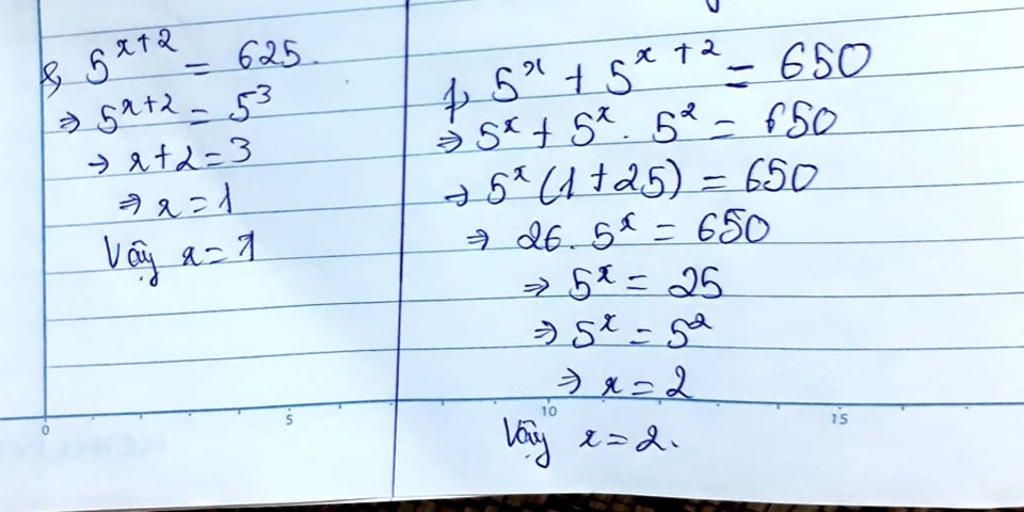 e, 5^{x+2} = 625.
⇒ 5^{x+2} = 5^3
⇒ x+2 = 3
⇒ x = 1
Vậy x = 1
f, 5^x + 5^{x+2} = 650
⇒ 5^x + 5^x . 5^2 = 650
⇒ 5^x (1+25) = 650
⇒ 26 . 5^x = 650
⇒ 5^x = 25
⇒ 5^x = 5^2
⇒ x = 2
Vậy x = 2.
0 5 10 15